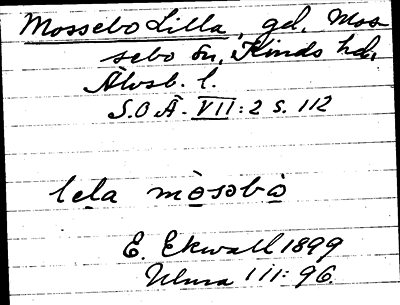 Mossebo Lilla, gd. Mos-
sebo sn, Kinds hd,
Älvsb. l.
S.O.Ä. VII: 2 s. 112
lela mòsəbò
E. Ekwall 1899
Ulma 111: 96.